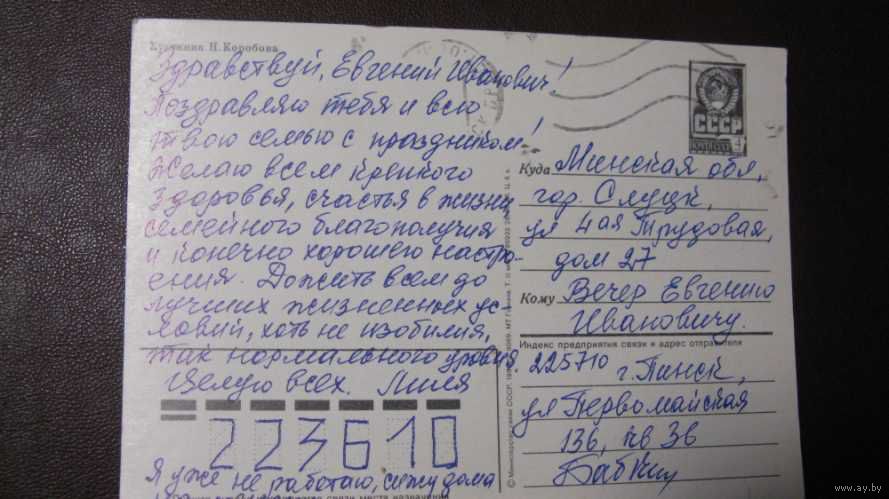 Художник Н. Коробова
Здравствуй, Евгений Иванович!
Поздравляю тебя и всю
твою семью с праздником!
Желаю всем крепкого
здоровья, счастья в жизни
семейного благополучия
и конечно хорошего настро-
ения. Дожить всем до
лучших жизненных ус-
ловий, хоть не изобилия,
так нормального уровня
Целую всех. Лиля
223610
Я уже не работаю, сижу дома
СССР
4
Куда Минская обл,
гор. Слуцк,
ул 4ая Трудовая,
дом 27
Кому Вечер Евгению
Ивановичу.
Индекс предприятия связи и адрес отправителя
225710
г. Пинск,
ул Первомайская
136, кв 36
www.ay.by